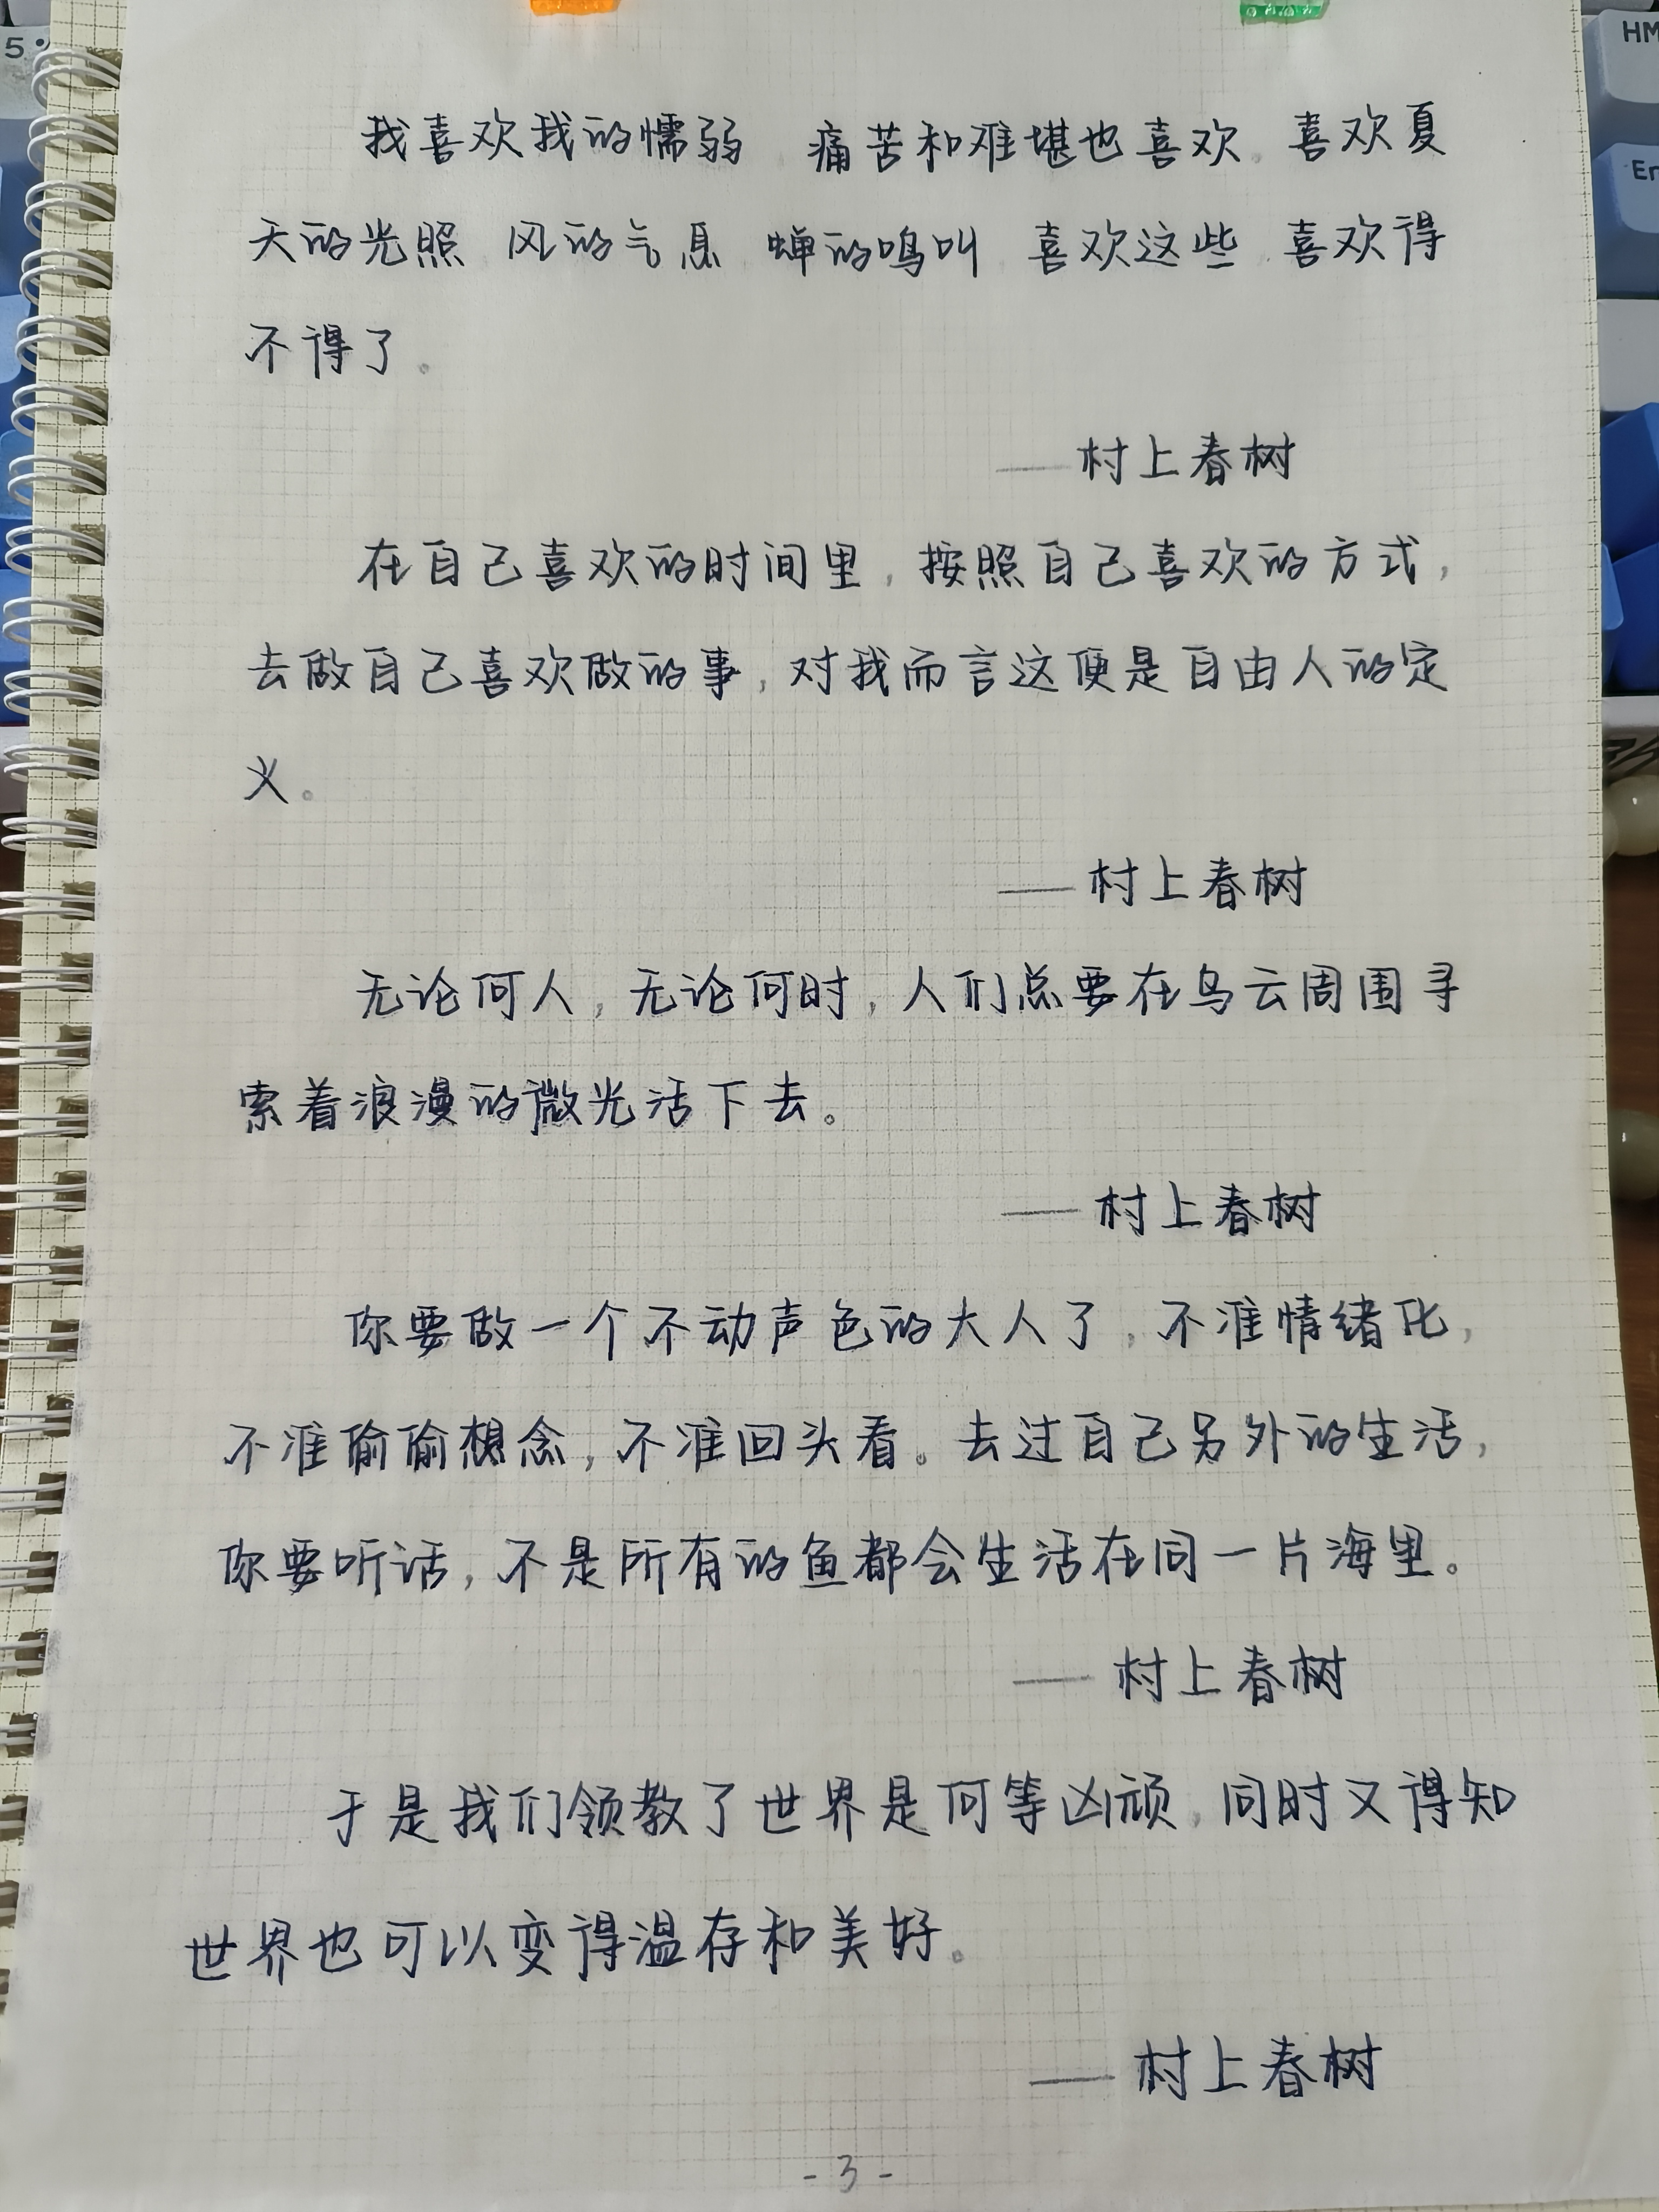 我喜欢我的懦弱 痛苦和难堪也喜欢 喜欢夏
天的光照 风的气息 蝉的鸣叫 喜欢这些 喜欢得
不得了。
——村上春树
在自己喜欢的时间里，按照自己喜欢的方式，
去做自己喜欢做的事，对我而言这便是自由人的定
义。
——村上春树
无论何人，无论何时，人们总要在乌云周围寻
索着浪漫的微光活下去。
——村上春树
你要做一个不动声色的大人了，不准情绪化，
不准偷偷想念，不准回头看。去过自己另外的生活，
你要听话，不是所有的鱼都会生活在同一片海里。
——村上春树
于是我们领教了世界是何等凶顽，同时又得知
世界也可以变得温存和美好。
——村上春树
-3-
5
HM